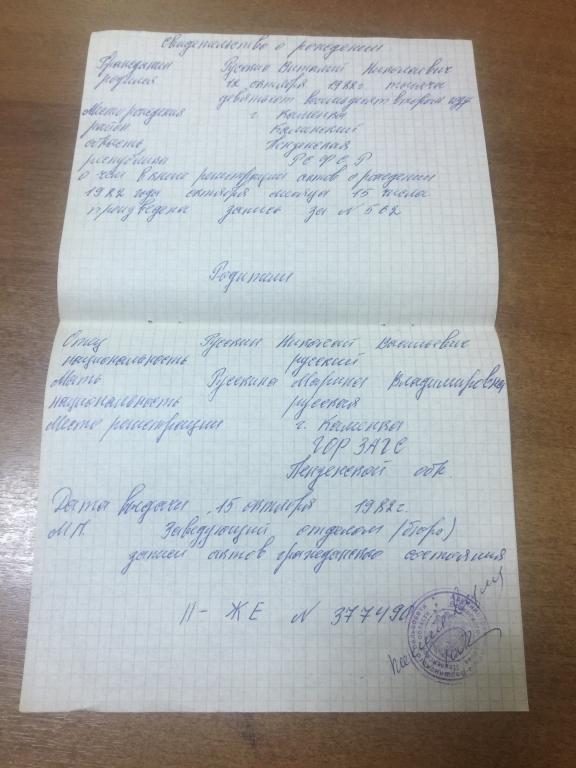 Свидетельство о рождении
Гражданин Русскин Виталий Николаевич
родился 12 октября 1982г. тысяча
девятьсот восемьдесят втором году
Место рождения г. Каменка
район Каменский
область Пензенская
республика РСФСР
о чем в книге регистрации актов о рождении
1982 года октября месяца 15 числа
произведена запись за N 502
Родители
Отец Русскин Николай Васильевич
национальность русский
Мать Русскина Марина Владимировна
национальность русская
Место регистрации г. Каменка
ГОР ЗАГС
Пензенской обл.
Дата выдачи 15 октября 1982г.
М.П. Заведующий отделом (бюро)
записи актов гражданского состояния
II - ЖЕ N 377490